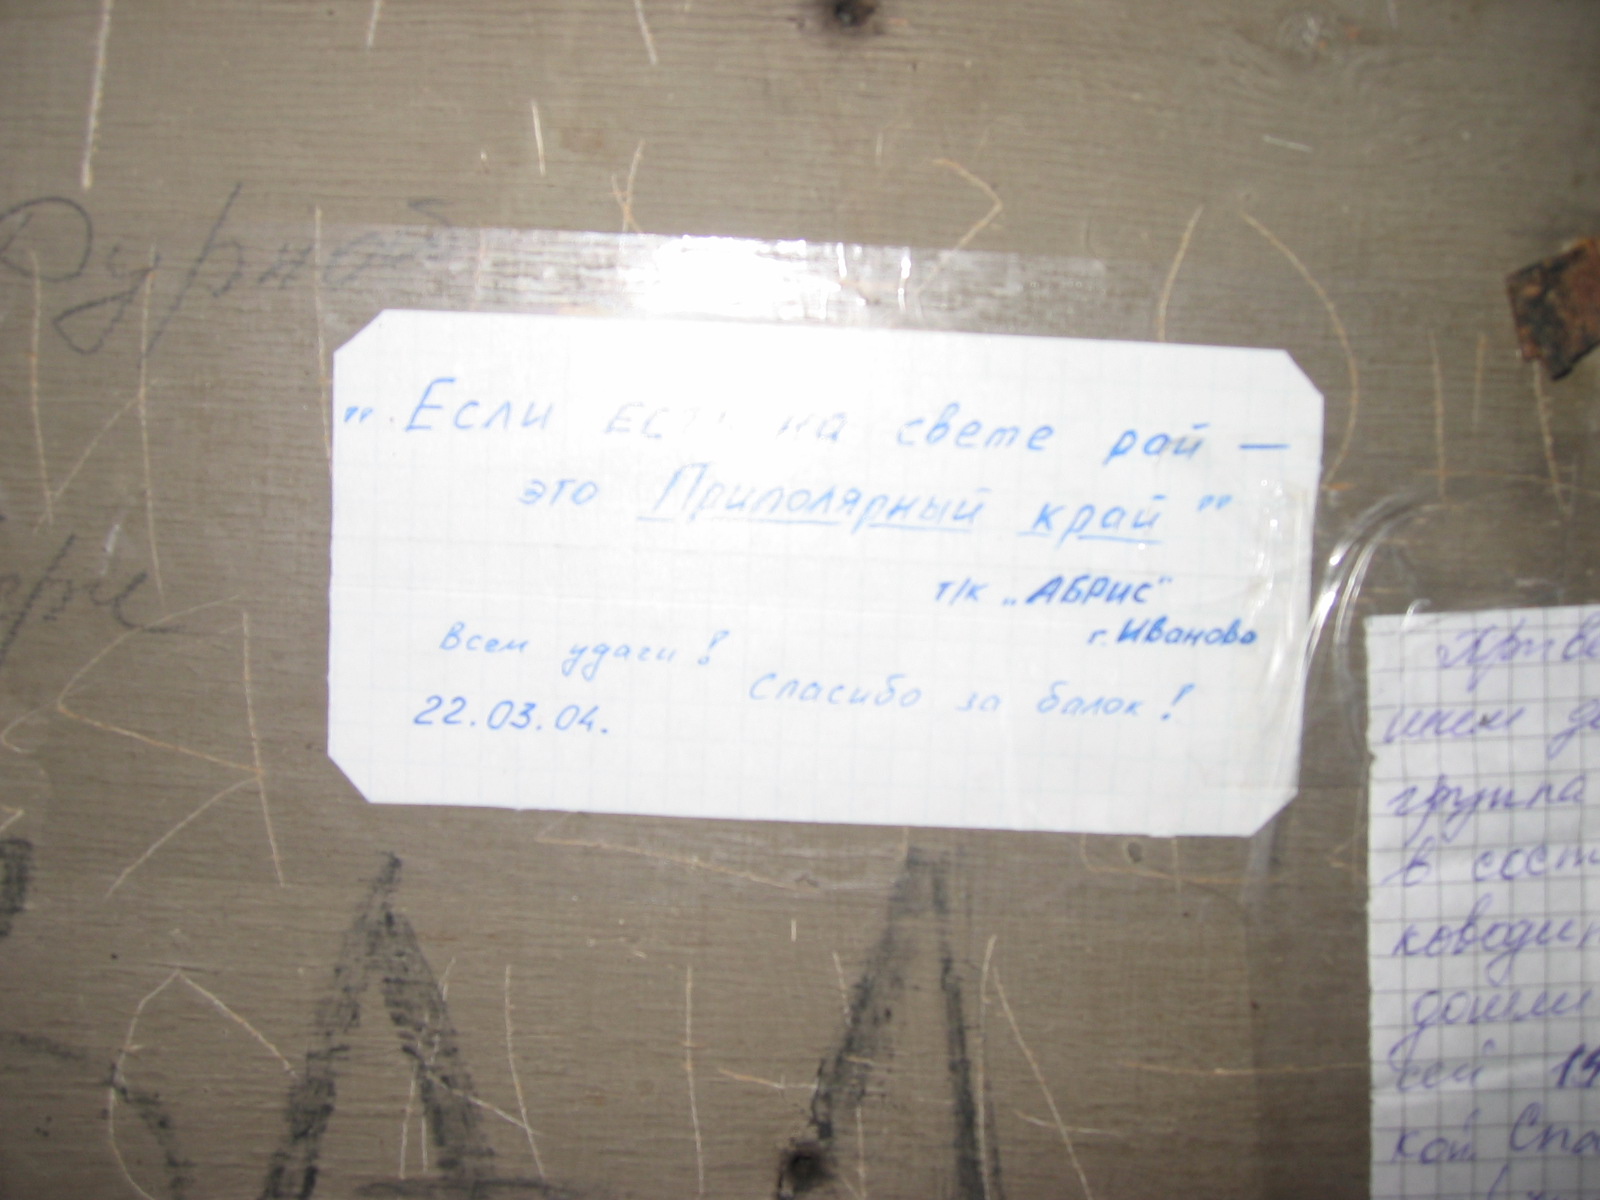 „Если есть на свете рай —
это Приполярный край"
т/к „АБРИС"
г. Иваново
Всем удачи!
Спасибо за балок!
22.03.04.
группа
в сост
ководи
дошли
сей 19
кой Спа